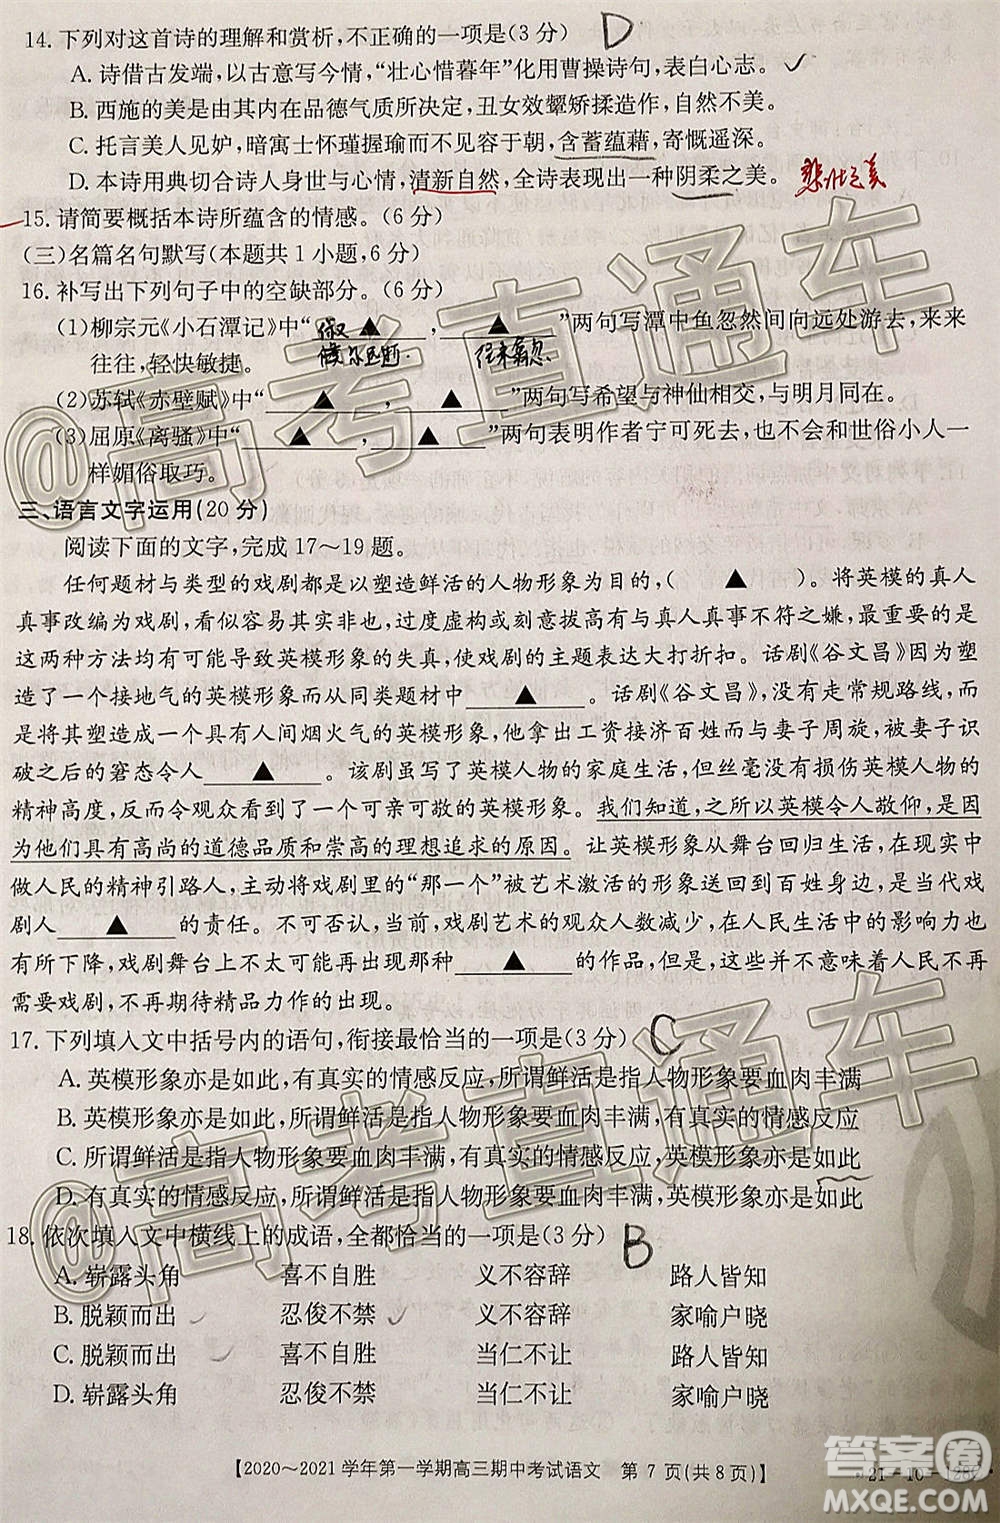 14. 下列对这首诗的理解和赏析,不正确的一项是(3 分) D
A. 诗借古发端,以古意写今情,“壮心惜暮年”化用曹操诗句,表白心志。
B. 西施的美是由其内在品德气质所决定,丑女效颦矫揉造作,自然不美。
C. 托言美人见妒,暗寓士怀瑾握瑜而不见容于朝,含蓄蕴藉,寄慨遥深。
D. 本诗用典切合诗人身世与心情,清新自然,全诗表现出一种阴柔之美。 悲壮之美
15. 请简要概括本诗所蕴含的情感。(6 分)
(三)名篇名句默写(本题共 1 小题,6 分)
16. 补写出下列句子中的空缺部分。(6 分)
(1)柳宗元《小石潭记》中“ 俶 ▲ , ▲ ”两句写潭中鱼忽然间向远处游去,来来
往往,轻快敏捷。 尔远逝 往来翕忽
(2)苏轼《赤壁赋》中“ ▲ , ▲ ”两句写希望与神仙相交,与明月同在。
(3)屈原《离骚》中“ ▲ , ▲ ”两句表明作者宁可死去,也不会和世俗小人一
样媚俗取巧。
三、语言文字运用(20 分)
阅读下面的文字,完成 17～19 题。
任何题材与类型的戏剧都是以塑造鲜活的人物形象为目的,( ▲ )。将英模的真人
真事改编为戏剧,看似容易,但其实非也,过度虚构或刻意拔高有与真人真事不符之嫌,而
这两种方法均有可能导致英模形象的失真,使戏剧的主题表达大打折扣。话剧《谷文昌》因塑
造了一个接地气的英模形象而从同类题材中 ▲ 。话剧《谷文昌》,没有走常规路线,而是
将其塑造成一个具有人间烟火气的英模形象,他拿出工资买自行车后与妻子周旋,被妻子识
破之后的窘态令人 ▲ 。该剧虽写了英模人物的家庭生活,但丝毫没有损伤英模人物的
精神高度,反而令观众看到了一个可亲可敬的英模形象。我们知道,之所以英模令人敬仰,是因
为他们具有高尚的道德品质和崇高的理想追求的原因。让英模形象从舞台回归生活,成为可以
做人民的精神引路人,主动将戏剧里的“那一个”被艺术激活的形象送回到百姓身边,是当代戏
剧人 ▲ 的责任。不可否认,当前,戏剧艺术的观众人数减少,在人民生活中的影响力也
有所下降,戏剧舞台上不太可能再出现那种 ▲ 的作品,但是,这些并不意味着人民不再
需要戏剧,不再期待精品力作的出现。
17. 下列填入文中括号内的语句,衔接最恰当的一项是(3 分) C
A. 英模形象亦是如此,有真实的情感反应,所谓鲜活是指人物形象要血肉丰满
B. 英模形象亦是如此,所谓鲜活是指人物形象要血肉丰满,有真实的情感反应
C. 所谓鲜活是指人物形象要血肉丰满,有真实的情感反应,英模形象亦是如此
D. 有真实的情感反应,所谓鲜活是指人物形象要血肉丰满,英模形象亦是如此
18. 依次填入文中横线上的成语,全都恰当的一项是(3 分) B
A. 崭露头角 喜不自胜 义不容辞 路人皆知
B. 脱颖而出 忍俊不禁 义不容辞 家喻户晓
C. 脱颖而出 喜不自胜 当仁不让 路人皆知
D. 崭露头角 忍俊不禁 当仁不让 家喻户晓
【2020～2021 学年第一学期高三期中考试语文 第 7 页(共 8 页)】
@高考直通车
@高考直通车
答案圈
MXQE.COM